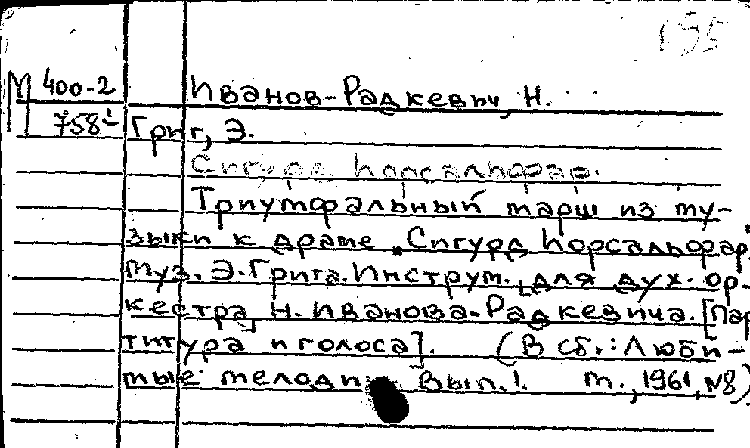 195
М 400-2
758¹
Иванов-Радкевич, Н.
Григ, Э.
Сигурд Иорсальфар.
Триумфальный марш из му-
зыки к драме "Сигурд Иорсальфар."
Муз. Э. Грига. Инструм. [для дух. ор-
кестра] Н. Иванова-Радкевича. [Пар
титура и голоса]. (В сб.: Люби-
мые мелодии Вып. 1. М., 1961, №8)